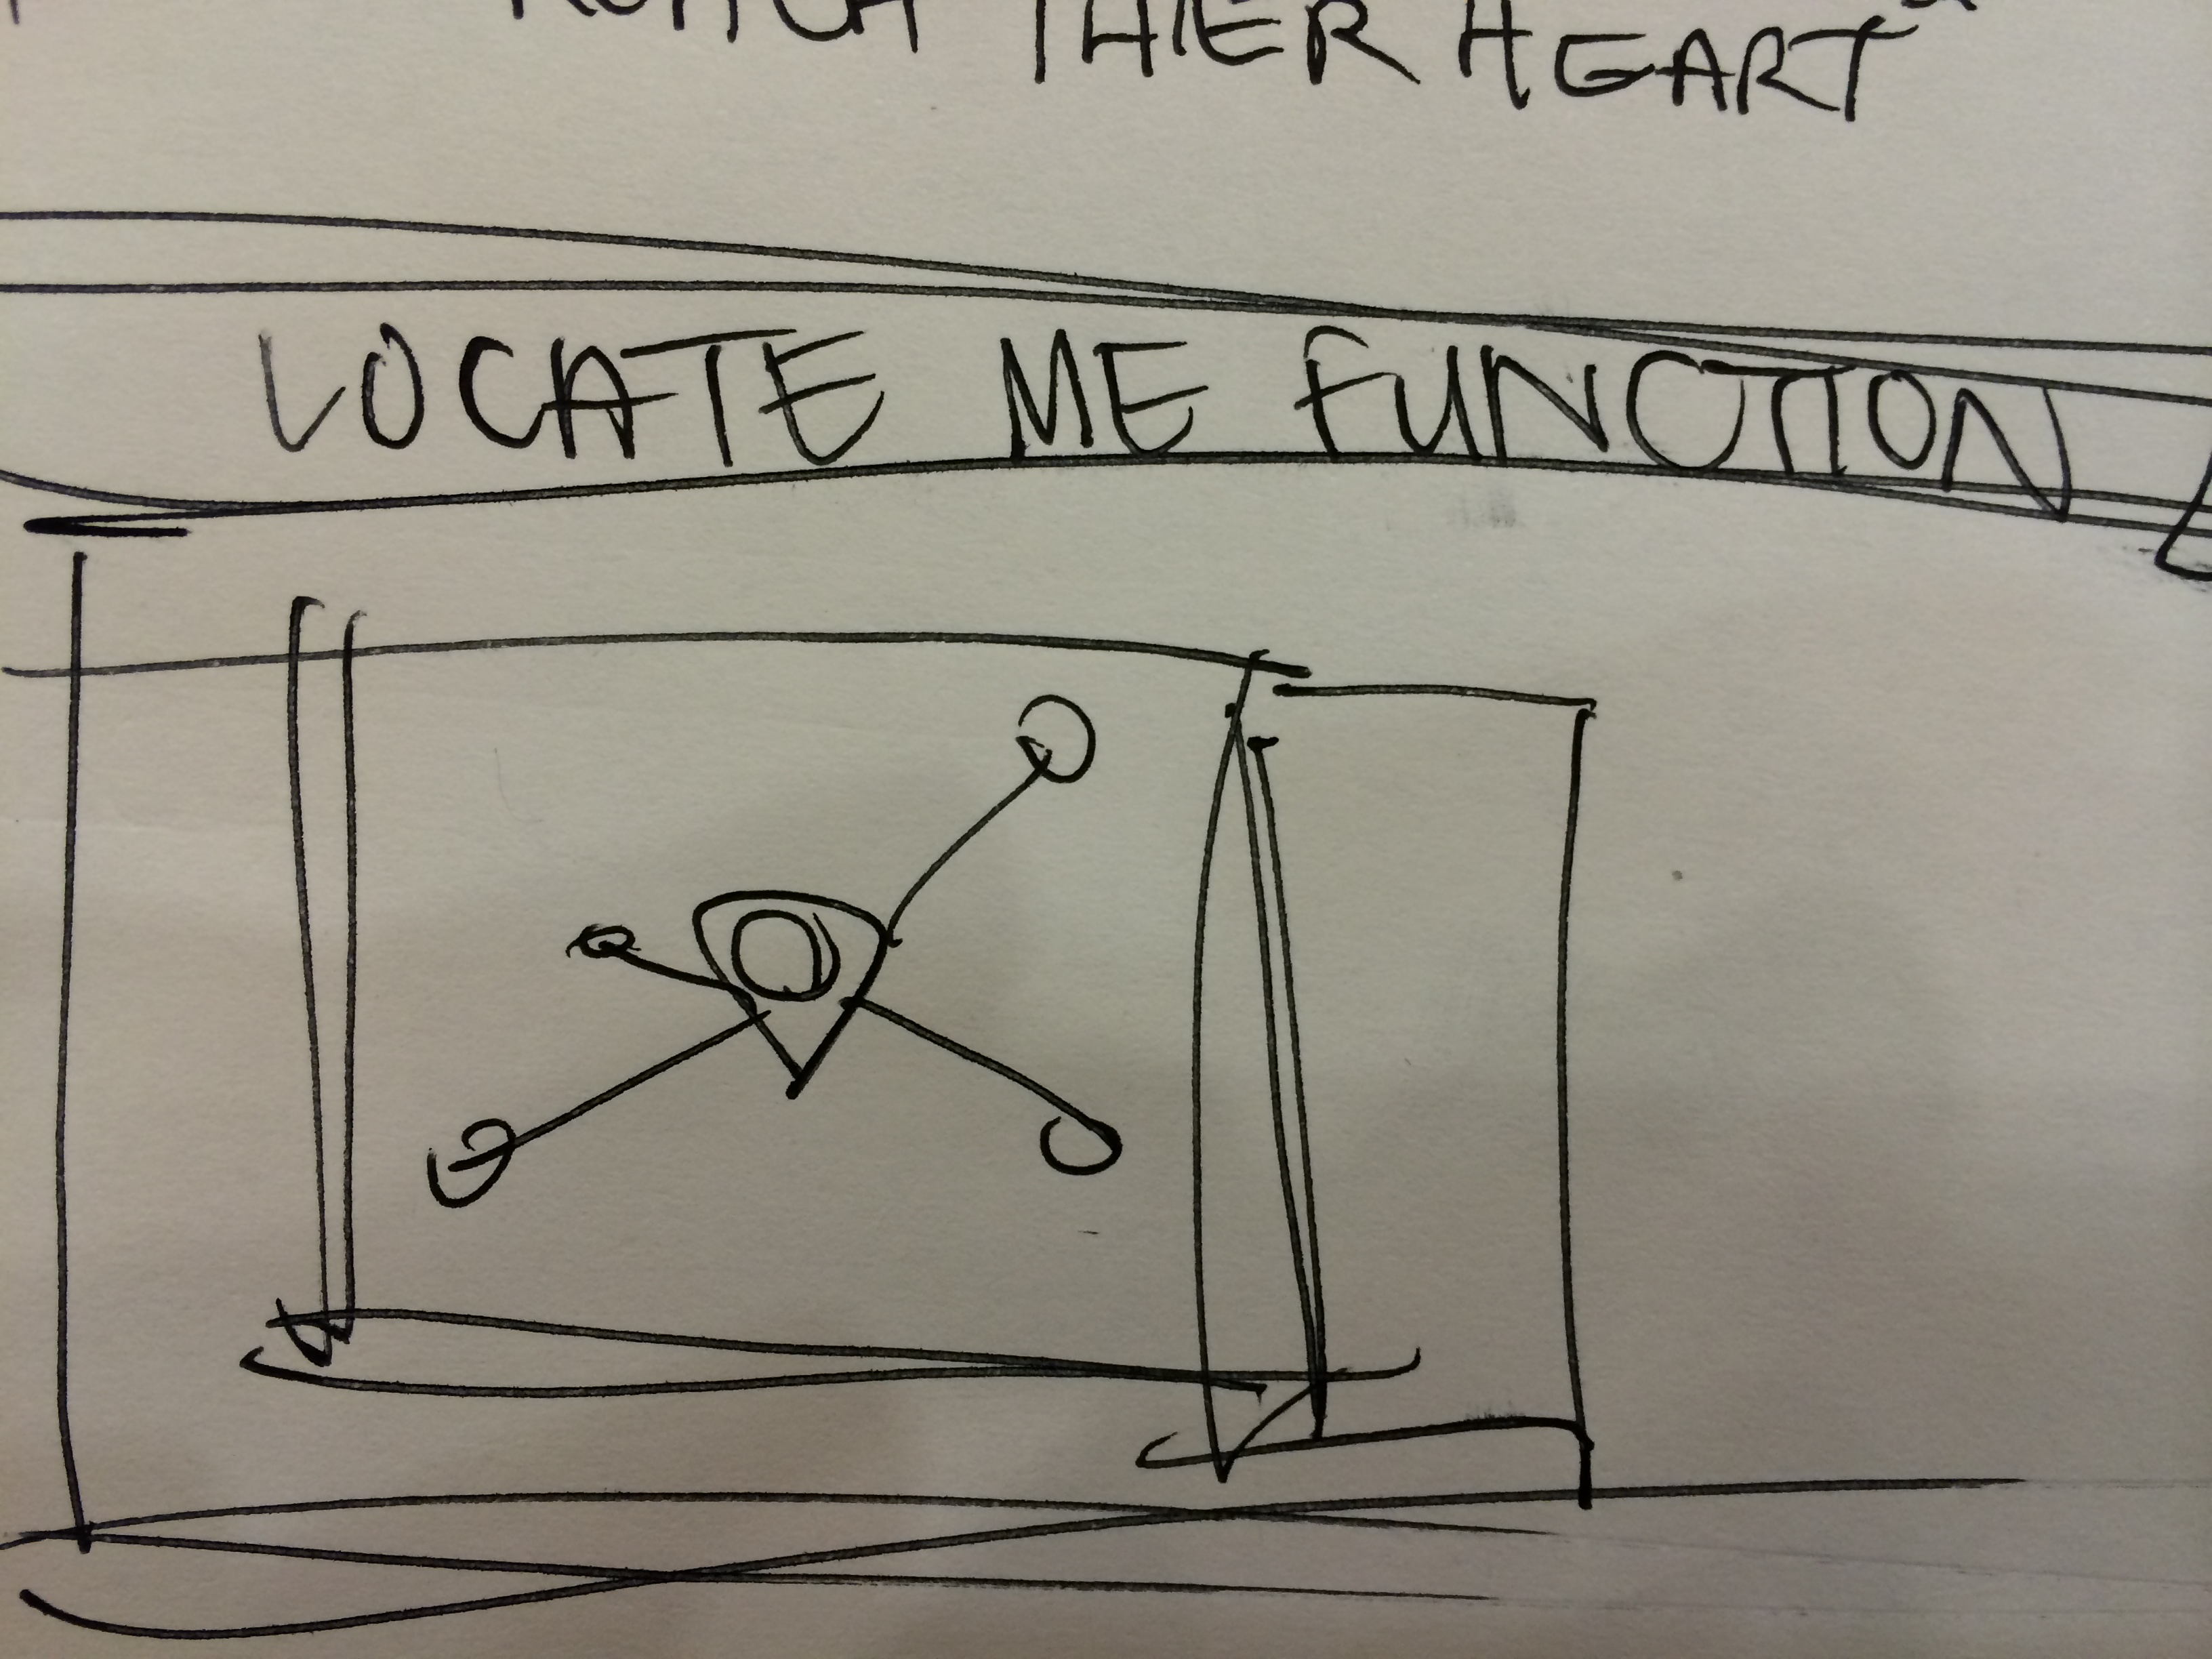 THIER HEART
LOCATE ME FUNCTION